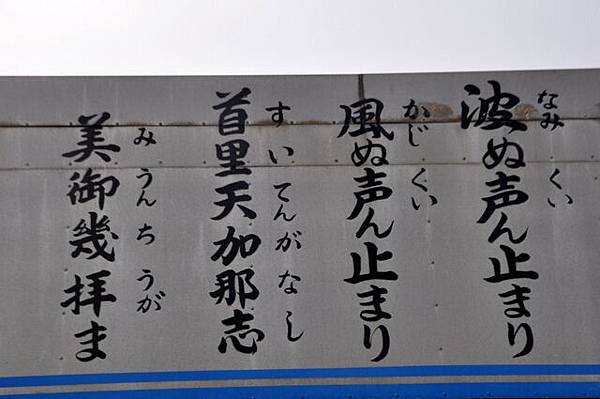 波ぬ声ん止まり
なみ くい
風ぬ声ん止まり
かじ くい
首里天加那志
すいてんがなし
美御機拝ま
みうんち うが